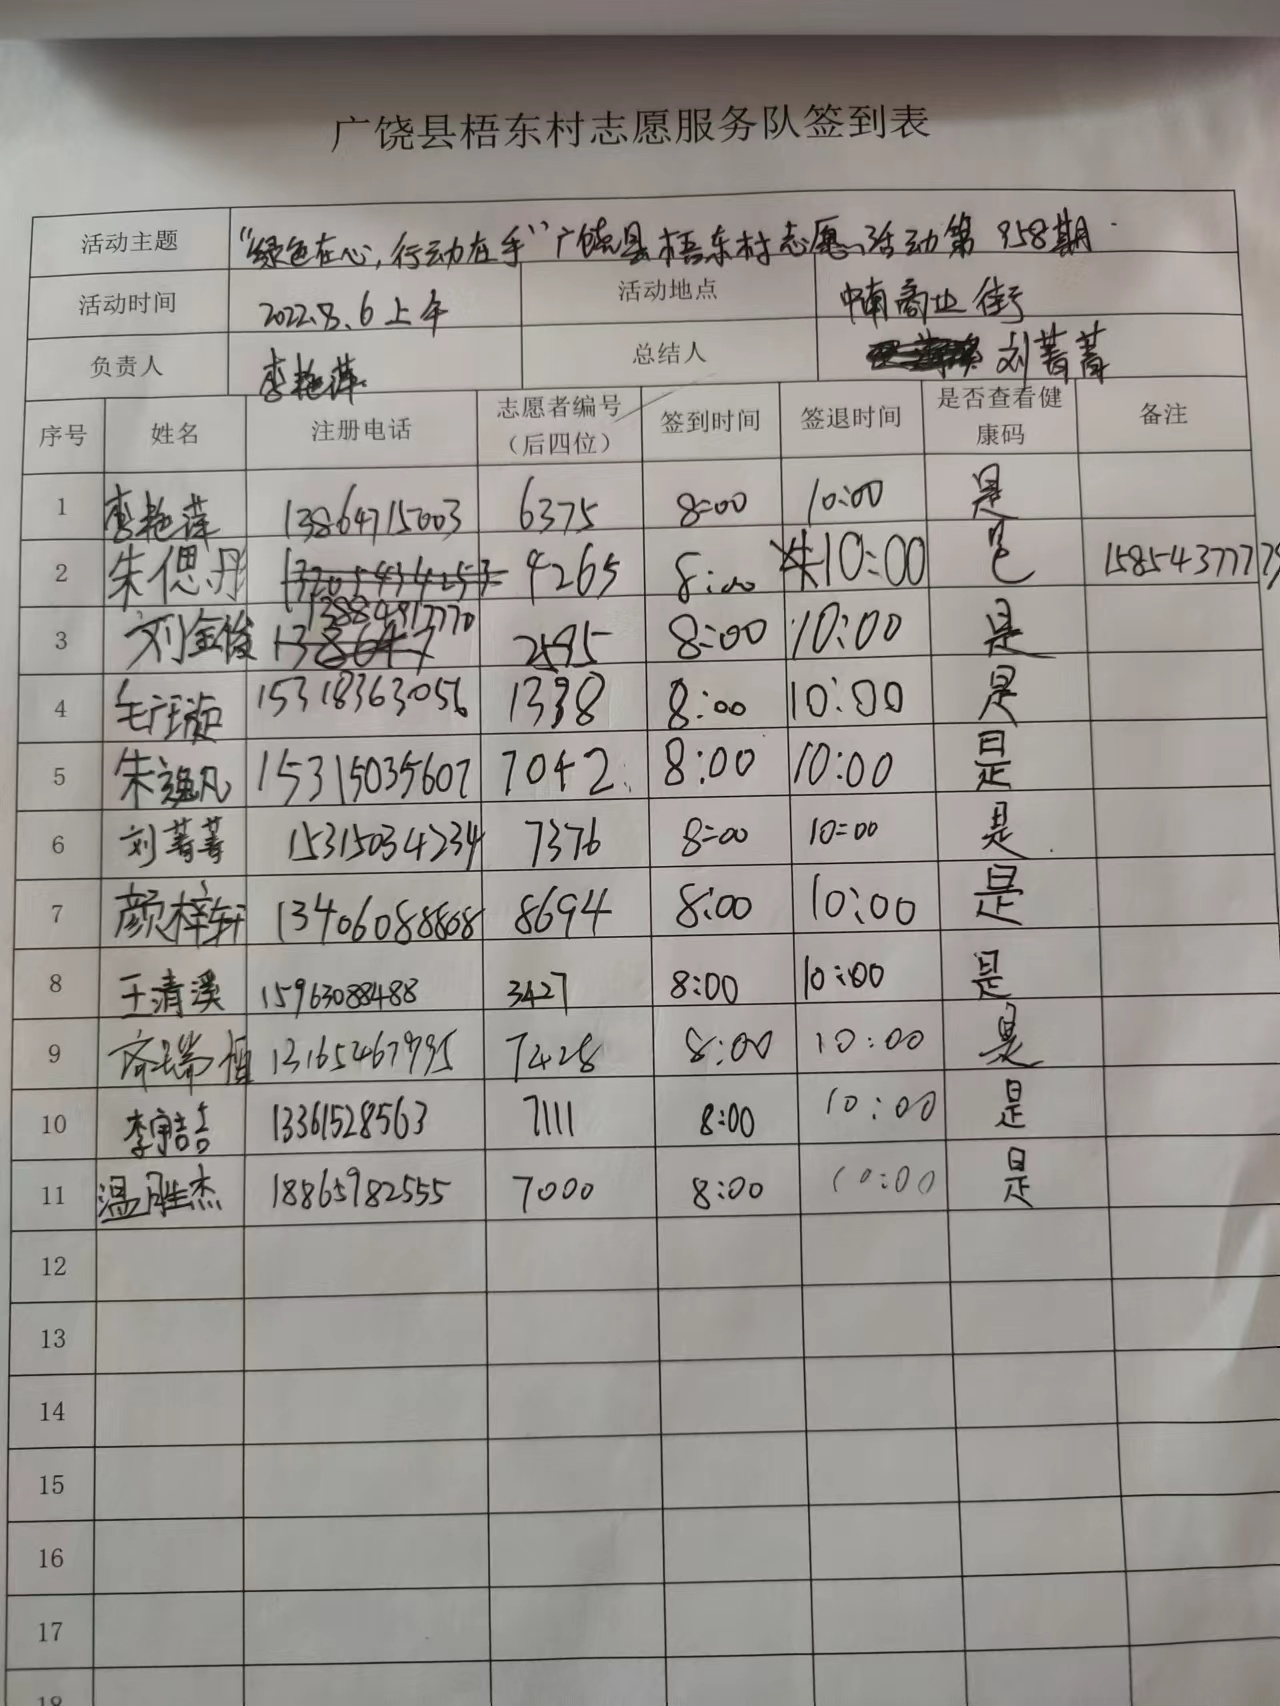 广饶县梧东村志愿服务队签到表
活动主题 "绿色在心,行动在手"广饶县梧东村志愿活动第958期
活动时间 2022.8.6上午 活动地点 中南商业街
负责人 李艳萍 总结人 刘菁菁
序号 姓名 注册电话 志愿者编号(后四位) 签到时间 签退时间 是否查看健康码 备注
1 李艳萍 13864715003 6375 8:00 10:00 是
2 朱偲彤 13205434253 4265 8:00 10:00 是 15854377779
3 刘金俊 13884917770 138647 2595 8:00 10:00 是
4 15318363056 1338 8:00 10:00 是
5 朱逸凡 15315035607 7042 8:00 10:00 是
6 刘菁菁 15315034234 7376 8:00 10:00 是
7 颜梓轩 13406088808 8694 8:00 10:00 是
8 王清溪 15963088488 3427 8:00 10:00 是
9 齐瑞恒 13165467995 7428 8:00 10:00 是
10 李宇喆 13361528563 7111 8:00 10:00 是
11 温胜杰 18865982555 7000 8:00 10:00 是
12
13
14
15
16
17
18